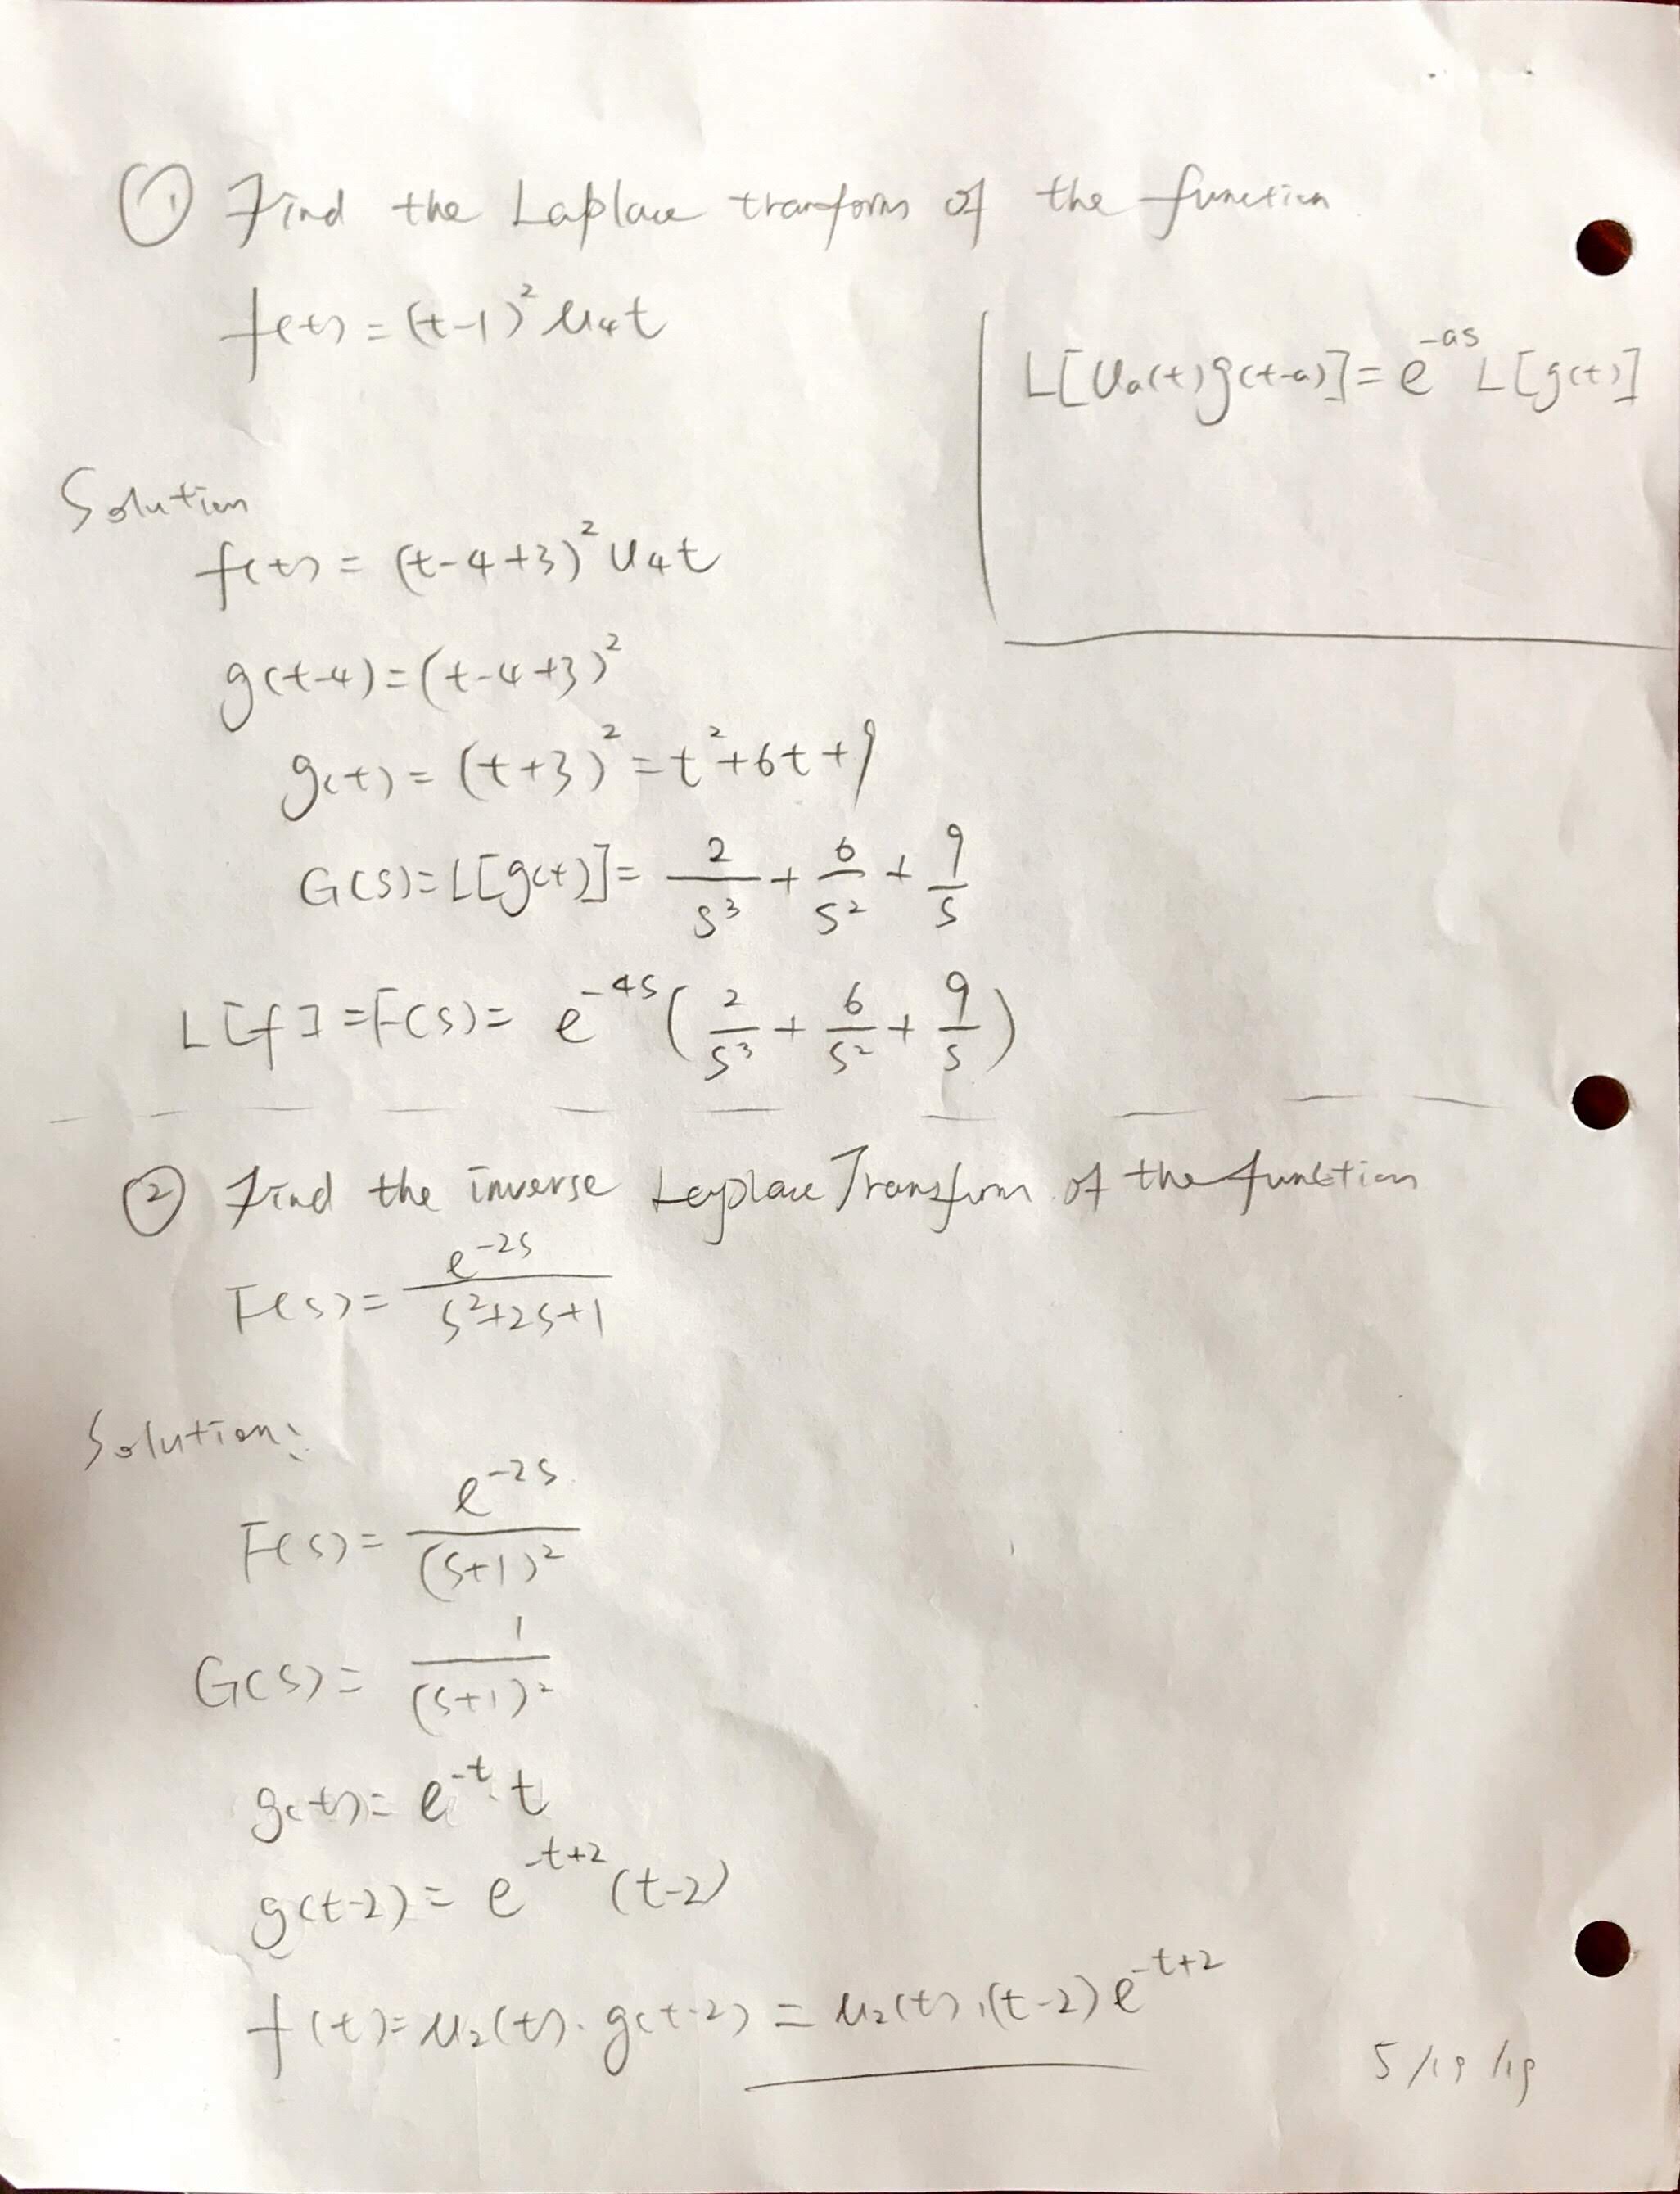 ① Find the Laplace transform of the function
f(t) = (t-1)² u₄t
L[Uₐ(t)g(t-a)] = e^{-as} L[g(t)]
Solution
f(t) = (t-4+3)² u₄t
g(t-4) = (t-4+3)²
g(t) = (t+3)² = t²+6t+9
G(s) = L[g(t)] = 2/s³ + 6/s² + 9/s
L[f] = F(s) = e^{-4s} (2/s³ + 6/s² + 9/s)
② Find the inverse Laplace Transform of the function
F(s) = e^{-2s}/(s²+2s+1)
Solution:
F(s) = e^{-2s}/(s+1)²
G(s) = 1/(s+1)²
g(t) = e^{-t} · t
g(t-2) = e^{-t+2} (t-2)
f(t) = u₂(t) · g(t-2) = u₂(t) · (t-2) e^{-t+2}
5/19/19